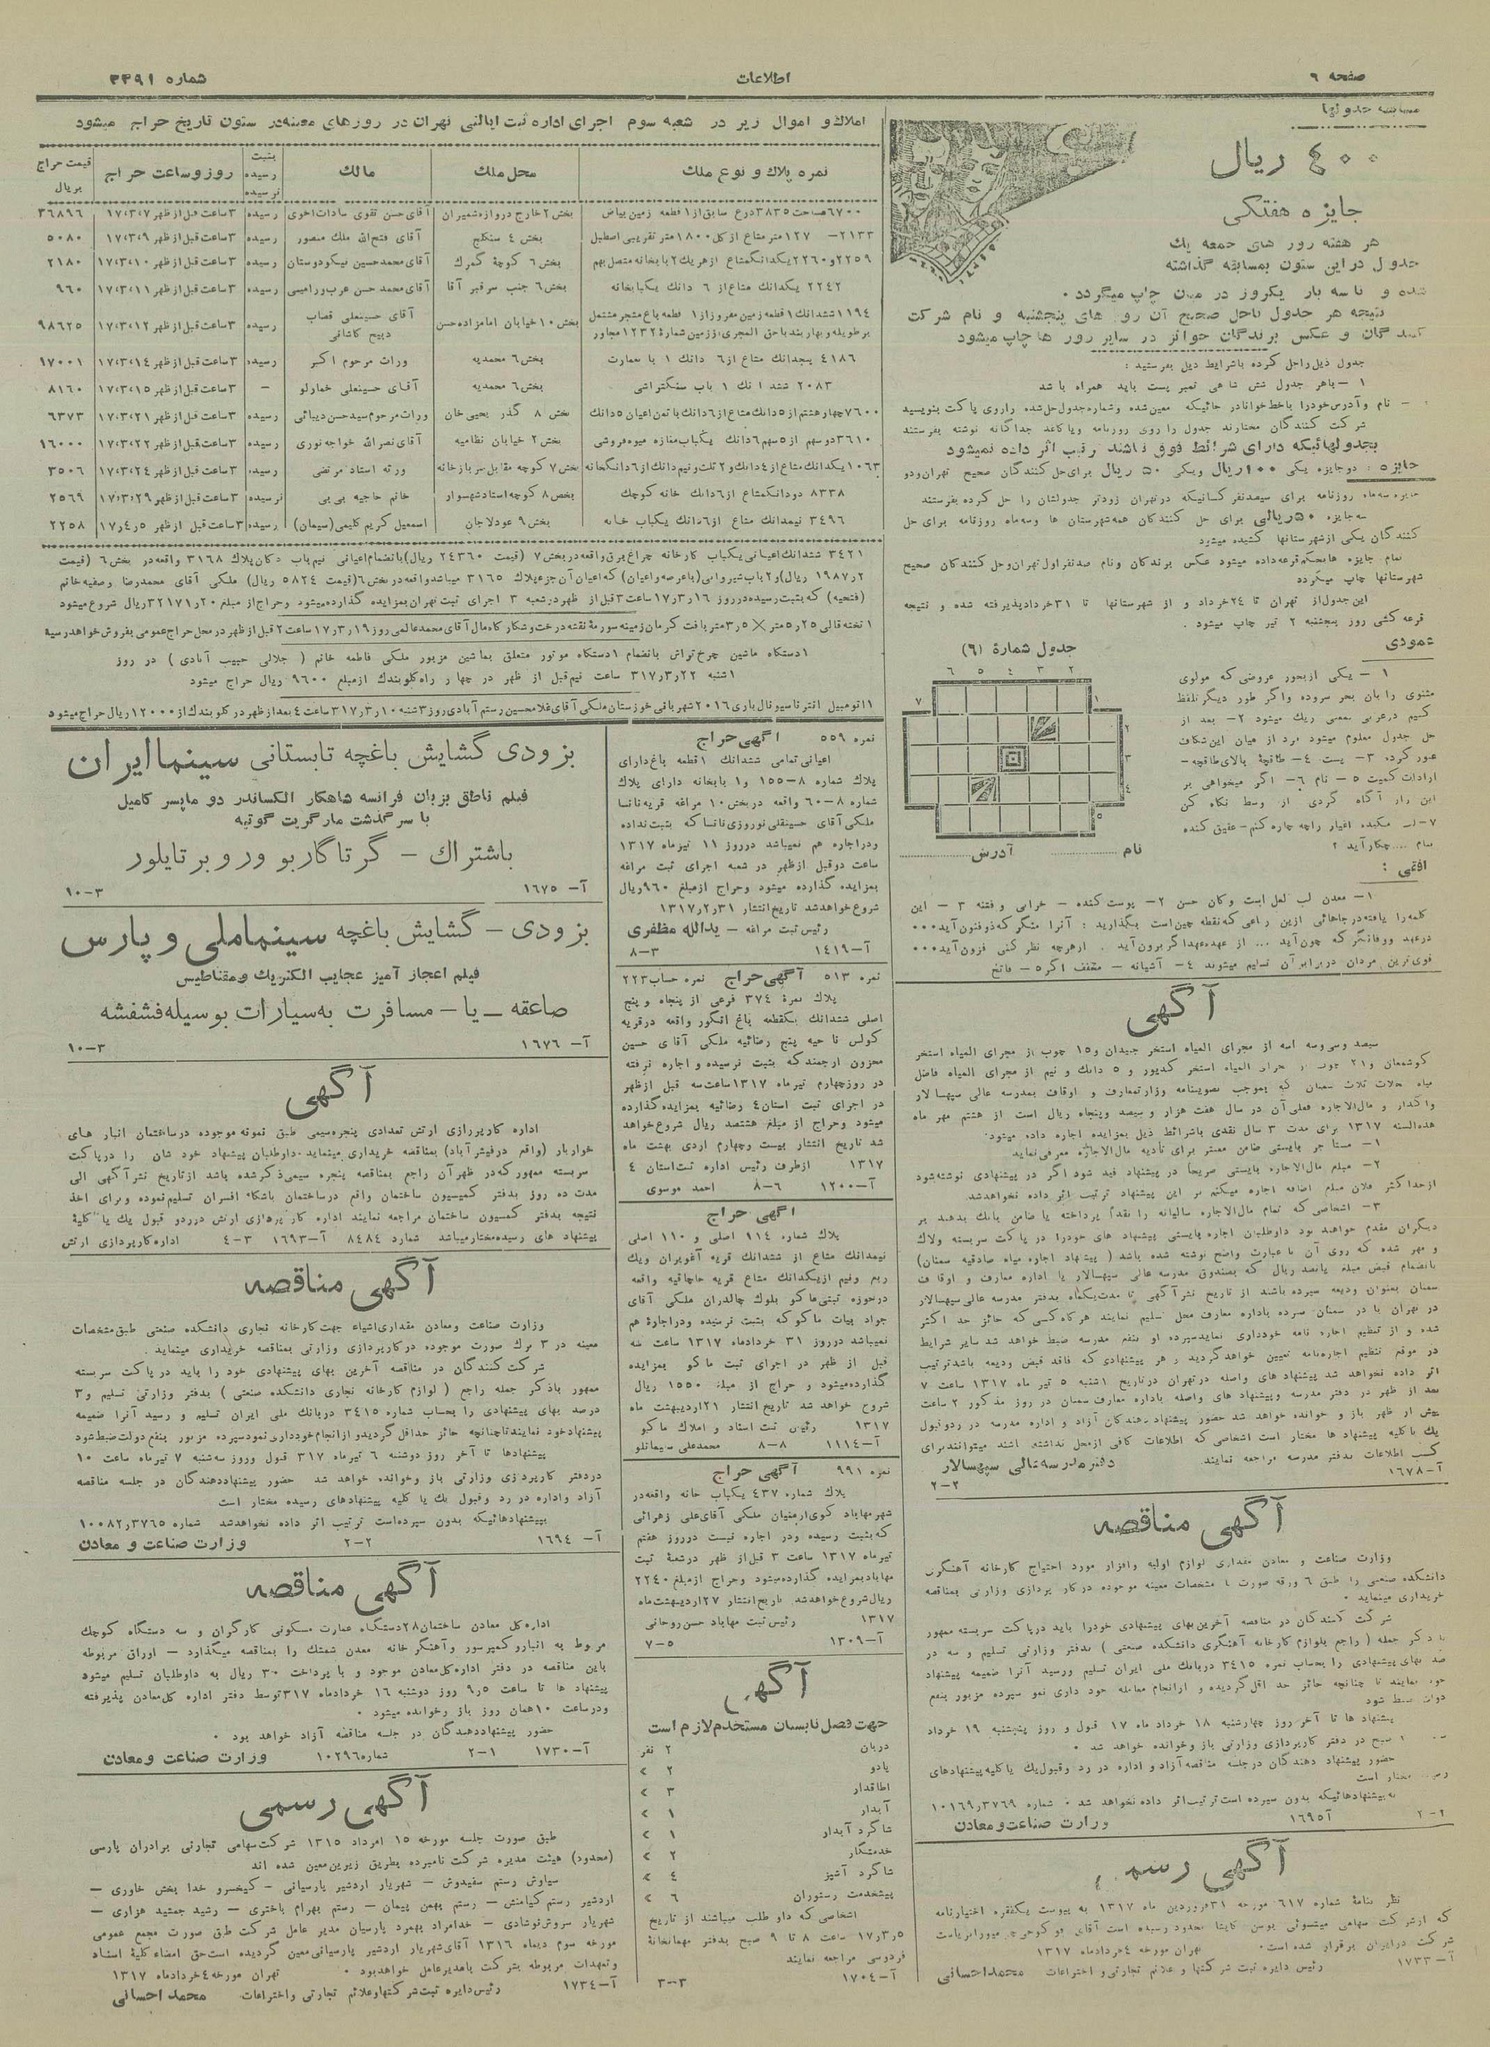 صفحه ۹
اطلاعات
شماره ۳۳۹۱
مسابقه جدولها
۴۰۰ ریال
جایزه هفتگی
هر هفته روز های جمعه یک
جدول در این ستون بمسابقه گذاشته
شده و تا سه بار یکروز در میان چاپ میگردد.
نتیجه هر جدول باحل صحیح آن روز های پنجشنبه و نام شرکت
کنندگان و عکس برندگان جوائز در سایر روز ها چاپ میشود
جدول ذیل راحل کرده باشرایط ذیل بفرستید:
۱ – باهر جدول شش شاهی تمبر پست باید همراه باشد
نام و آدرس خودرا باخط خوانا در حاشیکه معین شده و شماره جدول حل شده را روی پاکت بنویسید
شرکت کنندگان مختارند جدول را روی روزنامه ویا کاغذ جداگانه نوشته بفرستند
بجدولهائیکه دارای شرائط فوق نباشند ترتیب اثر داده نمیشود
جایزه : دو جایزه یکی ۱۰۰ ریال ویکی ۵۰ ریال برای حل کنندگان صحیح تهران ودو
جایزه سه ماه روزنامه برای سیصد نفر کسانیکه در تهران زودتر جدولشان را حل کرده بفرستند
سه جایزه ۵۰ ریالی برای حل کنندگان همه شهرستان ها وسه ماه روزنامه برای حل
کنندگان یکی از شهرستانها کشیده میشود
تمام جایزه ها بحکم قرعه داده میشود عکس برندگان ونام صد نفر اول تهران وحل کنندگان صحیح
شهرستانها چاپ میگردد
این جدول از تهران تا ۲۴ خرداد و از شهرستانها تا ۳۱ خرداد پذیرفته شده و نتیجه
قرعه کشی روز پنجشنبه ۲ تیر چاپ میشود.
عمودی
جدول شماره (۹)
۱ – یکی از بحور عروضی که مولوی
مثنوی را بآن بحر سروده واگر طور دیگر تلفظ
کنیم در عربی بمعنی ریک میشود ۲– بعد از
حل جدول معلوم میشود مرد از میان این شکاف
عبور کرده. ۳– پست ۴– طاقچهٔ بالای طاقچه–
ارادات کمیت ۵– نام ۶– اگر میخواهی بر
این راز آگاه گردی از وسط نگاه کن
نام
آدرس
افقی :
۱– معدن لب لعل است وکان حسن ۲– پوست کننده – خرابی و فتنه ۳– این
کلمه را یافته در جاهائی ازین رباعی که نقطه چین است بگذارید : آنرا منگر که ذوفنون آید...
در عهد ووفا نگر که چون آید ... از عهده عهد اگر برون آید . از هرچه نظر کنی فزون آید...
قوی ترین مردان در برابر آن تسلیم میشوند ۴– آشیانه – مخفف اگر ۵– فاتح
آگهی
سیصد وسی وسه اسه از مجرای المیاه استخر جنیدان و ۱۵ چوب از مجرای المیاه استخر
هذه السنه ۱۳۱۷ برای مدت ۳ سال نقدی باشرائط ذیل بمزایده اجاره داده میشود.
۱– مستأجر بایستی ضامن معتبر برای تأدیه مال الاجاره معرفی نماید
۲– مبلغ مال الاجاره بایستی صریحاً در پیشنهاد قید شود اگر در پیشنهادی نوشته شود
از حداکثر فلان مبلغ اضافه اجاره میکنم بر این پیشنهاد ترتیب اثر داده نخواهد شد.
۳– اشخاصی که تمام مال الاجاره سالیانه را نقداً پرداخته یا ضامن بانک بدهند بر
دیگران مقدم خواهند بود داوطلبان اجاره بایستی پیشنهاد های خودرا در پاکت سربسته ولاک
و مهر شده که روی آن باعبارت واضح نوشته شده باشد ( پیشنهاد اجاره میاه صادقیه سمنان)
بانضمام قبض مبلغ پانصد ریال که بصندوق مدرسه عالی سپهسالار یا اداره معارف و اوقاف
سمنان بعنوان ودیعه سپرده باشند از تاریخ نشر آگهی تا مدت یکماه بدفتر مدرسه عالی سپهسالار
در تهران یا در سمنان سپرده باداره معارف محل تسلیم نمایند هر کاه کسی که حائز حد اکثر
شده و از تنظیم اجاره نامه خودداری نماید سپرده او بنفع مدرسه ضبط خواهد شد سایر شرایط
در موقع تنظیم اجاره نامه تعیین خواهد گردید و هر پیشنهادی که فاقد قبض ودیعه باشد ترتیب
اثر داده نخواهد شد پیشنهاد های واصله در تهران در تاریخ ۱ شنبه ۵ تیر ماه ۱۳۱۷ ساعت ۷
بعد از ظهر در دفتر مدرسه وپیشنهاد های واصله باداره معارف سمنان در روز مذکور ۲ ساعت
پیش از ظهر باز و خوانده خواهد شد حضور پیشنهاد دهندگان آزاد و اداره مدرسه در رد و قبول
یک یا کلیه پیشنهاد ها مختار است اشخاصی که اطلاعات کافی از محل نداشته باشند میتوانند برای
کسب اطلاعات بدفتر مدرسه مراجعه نمایند
دفتر مدرسه عالی سپهسالار
آ–۱۶۷۸
۲–۲
آگهی مناقصه
وزارت صناعت و معادن مقداری لوازم اولیه وافزار مورد احتیاج کارخانه آهنگری
دانشکده صنعتی را طبق ۶ ورقه صورت با مشخصات معینه موجوده در کار پردازی وزارتی بمناقصه
خریداری مینماید .
شرکت کنندگان در مناقصه آخرین بهای پیشنهادی خودرا باید در پاکت سربسته ممهور
با ذکر جمله ( راجع بلوازم کارخانه آهنگری دانشکده صنعتی ) بدفتر وزارتی تسلیم و سه در
صد بهای پیشنهادی را بحساب نمره ۳۴۱۵ در بانک ملی ایران تسلیم ورسید آنرا ضمیمه پیشنهاد
خود نمایند تا چنانچه حائز حد اقل گردیده و از انجام معامله خود داری نمود سپرده مزبور بنفع
دولت ضبط شود
پیشنهاد ها تا آخر روز چهارشنبه ۱۸ خرداد ماه ۱۷ قبول و روز پنجشنبه ۱۹ خرداد
صبح در دفتر کارپردازی وزارتی باز وخوانده خواهد شد .
حضور پیشنهاد دهندگان در جلسه مناقصه آزاد و اداره در رد وقبول یک یا کلیه پیشنهادهای
رسیده مختار است
به پیشنهادهائیکه بدون سپرده است ترتیب اثر داده نخواهد شد . شماره ۱۰۱۶۹٫۳۷۶۹
آ ۱۶۹۵
وزارت صناعت و معادن
آگهی رسمی
تهران مورخه ۴ خرداد ماه ۱۳۱۷
آ–۱۷۳۳
رئیس دایره ثبت شرکتها و علائم تجارتی و اختراعات
محمد احسانی
املاک و اموال زیر در شعبه سوم اجرای اداره ثبت ایالتی تهران در روزهای معینه در ستون تاریخ حراج میشود
نمره پلاک و نوع ملک
محل ملک
مالک
بثبت رسیده نرسیده
روز و ساعت حراج
قیمت حراج بریال
۶۷۰۰ بمساحت ۳۸۳۵ ذرع سابق از ۱ قطعه زمین بیاض بخش ۲ خارج دروازه شمیران آقای حسن تقوی سادات اخوی رسیده ۳ ساعت قبل از ظهر ۱۷٫۳٫۷ ۳۶۸۹۶
۲۱۳۳– ۱۲۷ متر متاع از کل ۱۸۰۰ متر تقریبی اصطبل بخش ۴ سنگلج آقای فتح الله ملک منصور رسیده ۳ ساعت قبل از ظهر ۱۷٫۳٫۹ ۵۰۸۰
۲۲۵۹ و ۲۲۶۰ یکدانگ مشاع از هر یک ۲ بابخانه متصل بهم بخش ۶ کوچهٔ گمرک آقای محمد حسین نیکو دوستان رسیده ۳ ساعت قبل از ظهر ۱۷٫۳٫۱۰ ۲۱۸۰
۲۲۴۲ یکدانک متاع از ۶ دانک یکبابخانه بخش ۶ جنب سرقبر آقا آقای محمد حسن عرب ورامینی رسیده ۳ ساعت قبل از ظهر ۱۷٫۳٫۱۱ ۹۶۰
۱۱۹۴ ششدانک ۱ قطعه زمین مفروز از ۱ قطعه باغ مشجر مشتمل
برطویله و بهاربند باحق المجری، از زمین شمارهٔ ۱۲۳۲ مجاور بخش ۱۰ خیابان امامزاده حسن آقای حسینعلی قصاب ذبیح کاشانی رسیده ۳ ساعت قبل از ظهر ۱۷٫۳٫۱۲ ۹۸۶۲۵
۴۱۸۶ پنجدانک متاع از ۶ دانک ۱ با عمارت بخش ۶ محمدیه وراث مرحوم اکبر رسیده ۳ ساعت قبل از ظهر ۱۷٫۳٫۱۴ ۱۷۰۰۱
۲۰۸۳ ششدانک ۱ باب سنگتراشی بخش ۶ محمدیه آقای حسینعلی خمارلو – ۳ ساعت قبل از ظهر ۱۷٫۳٫۱۵ ۸۱۶۰
۷۶۰۰ چهار هشتم از ۵ دانک متاع از ۶ دانک با ثمن اعیان ۵ دانک بخش ۸ گذر یحیی خان وراث مرحوم سید حسن دیبائی رسیده ۳ ساعت قبل از ظهر ۱۷٫۳٫۲۱ ۶۳۷۳
۳۶۱۰ دو سهم از ۵ سهم ۶ دانک یکباب مغازه میوه فروشی بخش ۲ خیابان نظامیه آقای نصرالله خواجه نوری رسیده ۳ ساعت قبل از ظهر ۱۷٫۳٫۲۲ ۱۶۰۰۰
۱۰۶۳ یکدانک متاع از ۴ دانک و ۲ ثلث ونیم دانک از ۶ دانگخانه بخش ۷ کوچه مقابل سربازخانه ورثه استاد مرتضی رسیده ۳ ساعت قبل از ظهر ۱۷٫۳٫۲۴ ۳۵۰۶
۸۳۳۸ دو دانگ متاع از ۶ دانک خانه کوچک بخش ۸ کوچه استاد شهسوار خانم حاجیه بی بی نرسیده ۳ ساعت قبل از ظهر ۱۷٫۳٫۲۹ ۲۵۶۹
۳۴۹۶ نیمدانک متاع از ۶ دانک یکباب خانه بخش ۹ عودلاجان اسمعیل کریم کلیمی (سیمان) رسیده ۳ ساعت قبل از ظهر ۱۷٫۴٫۵ ۲۲۵۸
۳۴۲۱ ششدانک اعیانی یکباب کارخانه چراغ برق واقعه در بخش ۷ (قیمت ۲۴۳۶۰ ریال) بانضمام اعیانی نیم باب دکان پلاک ۳۱۶۸ واقعه در بخش ۶ (قیمت
۱۹۸۷٫۲ ریال) و ۲ باب شیروانی (باعرصه واعیان) که اعیان آن جزء پلاک ۳۱۶۵ میباشد واقعه در بخش ۶ (قیمت ۵۸۲۴ ریال) ملکی آقای محمدرضا وصفیه خانم
(فتحیه) که بثبت رسیده در روز ۱۷٫۳٫۱۶ ساعت ۳ قبل از ظهر در شعبه ۳ اجرای ثبت تهران بمزایده گذارده میشود وحراج از مبلغ ۳۲۱۷۱٫۲۰ ریال شروع میشود
۱ تخته قالی ۵٫۲۵ متر × ۳٫۵ متر بافت کرمان زمینه سورمهٔ نقشه درخت وشکارگاه مال آقای محمد عالمی روز ۱۷٫۳٫۱۹ ساعت ۲ قبل از ظهر در محل حراج عمومی بفروش خواهد رسید
۱ دستگاه ماشین چرخ تراش بانضمام ۱ دستگاه موتور متعلق بماشین مزبور ملکی فاطمه خانم ( جلالی حبیب آبادی ) در روز
۱ شنبه ۳۱۷٫۳٫۲۲ ساعت نیم قبل از ظهر در چهار راه گلوبندک از مبلغ ۹۶۰۰ ریال حراج میشود
۱ اتومبیل انترناسیونال باری ۲۰۱۶ شهربانی خوزستان ملکی آقای غلامحسین رستم آبادی روز ۳ شنبه ۳۱۷٫۳٫۱۰ ساعت ۴ بعد از ظهر در گلوبندک از ۱۲۰۰۰ ریال حراج میشود
نمره ۵۵۹ آگهی حراج
اعیانی تمامی ششدانک ۱ قطعه باغ دارای
پلاک شماره ۸–۱۵۵ و ۱ بابخانه دارای پلاک
شماره ۸–۶۰ واقعه در بخش ۱۰ مراغه قریه نانسا
ملکی آقای حسینقلی نوروزی نانسا که بثبت نداده
ودر اجاره هم نمیباشد در روز ۱۱ تیر ماه ۱۳۱۷
ساعت دو قبل از ظهر در شعبه اجرای ثبت مراغه
بمزایده گذارده میشود وحراج از مبلغ ۹۶۰ ریال
شروع خواهد شد تاریخ انتشار ۱۳۱۷٫۲٫۳۱
رئیس ثبت مراغه – یدالله مظفری
آ–۱۴۱۹ ۸–۳
نمره ۵۱۳ آگهی حراج نمره حساب ۲۲۳
پلاک نمرهٔ ۳۷۴ فرعی از پنجاه و پنج
اصلی ششدانک یکقطعه باغ انگور واقعه در قریه
کولس ناحیه پنج رضائیه ملکی آقای حسین
محزون ارجمند که بثبت نرسیده و اجاره نرفته
در روز چهارم تیر ماه ۱۳۱۷ ساعت سه قبل از ظهر
در اجرای ثبت استان ۴ رضائیه بمزایده گذارده
میشود وحراج از مبلغ هشتصد ریال شروع خواهد
شد تاریخ انتشار بیست وچهارم اردی بهشت ماه
۱۳۱۷ از طرف رئیس اداره ثبت استان ۴
آ–۱۲۰۰ ۸–۶ احمد موسوی
آگهی حراج
پلاک شماره ۱۱۴ اصلی و ۱۱۰ اصلی
نیمدانک متاع از ششدانک قریه آغویران ویک
ربع ونیم از یکدانک متاع قریه حاجاقیه واقعه
در حوزه ثبتی ماکو بلوک چالدران ملکی آقای
جواد بیات ماکو که بثبت نرسیده ودر اجاره هم
نمیباشد در روز ۳۱ خرداد ماه ۱۳۱۷ ساعت سه
قبل از ظهر در اجرای ثبت ماکو بمزایده
گذارده میشود و حراج از مبلغ ۱۵۵۰ ریال
شروع خواهد شد تاریخ انتشار ۲۱ اردیبهشت ماه
۱۳۱۷ رئیس ثبت اسناد و املاک ماکو
آ–۱۱۱۴ ۸–۸ محمد علی سیمانلو
نمره ۹۹۱ آگهی حراج
پلاک شماره ۴۳۷ یکباب خانه واقعه در
شهر مهاباد کوی ارمنیان ملکی آقای علی زهرائی
که بثبت رسیده ودر اجاره نیست در روز هفتم
تیر ماه ۱۳۱۷ ساعت ۳ قبل از ظهر در شعبهٔ ثبت
مهاباد بمزایده گذارده میشود وحراج از مبلغ ۲۲۴۰
ریال شروع خواهد شد تاریخ انتشار ۲۷ اردیبهشت ماه
۱۳۱۷ رئیس ثبت مهاباد حسن روحانی
آ–۱۳۰۹ ۷–۵
آگهی
جهت فصل تابستان مستخدم لازم است
دربان ۲ نفر
پادو ۲ >
اطاقدار ۳ >
آبدار ۱ >
شاگرد آبدار ۱ >
خدمتگار ۲ >
شاگرد آشپز ۴ >
پیشخدمت رستوران ۶ >
اشخاصی که داو طلب میباشند از تاریخ
۱۷٫۳٫۵ ساعت ۸ تا ۹ صبح بدفتر مهمانخانهٔ
فردوسی مراجعه نمایند
آ–۱۷۰۴ ۳–۳
بزودی گشایش باغچه تابستانی سینما ایران
فیلم ناطق بزبان فرانسه شاهکار الکساندر دوما پسر کامیل
با سرگذشت مارگریت گوتیه
باشتراک – گرتا گاربو و روبر تایلور
آ–۱۶۷۵ ۱۰–۳
بزودی – گشایش باغچه سینما ملی و پارس
فیلم اعجاز آمیز عجایب الکتریک و مقناطیس
صاعقه – یا – مسافرت به سیارات بوسیله فشفشه
آ–۱۶۷۶ ۱۰–۳
آگهی
اداره کارپردازی ارتش تعدادی پنجره سیمی طبق نمونه موجوده در ساختمان انبار های
خواربار (واقع در فیشر آباد) بمناقصه خریداری مینماید. داوطلبان پیشنهاد خود شان را در پاکت
سربسته ممهور که در ظهر آن راجع بمناقصه پنجره سیمی ذکر شده باشد از تاریخ نشر آگهی الی
مدت ده روز بدفتر کمیسیون ساختمان واقع در ساختمان باشگاه افسران تسلیم نموده و برای اخذ
نتیجه بدفتر کمسیون ساختمان مراجعه نمایند اداره کارپردازی ارتش در رد و قبول یک یا کلیهٔ
پیشنهاد های رسیده مختار میباشد شمارد ۸۴۸۴ آ–۱۶۹۳ ۴–۳ اداره کارپردازی ارتش
آگهی مناقصه
وزارت صناعت ومعادن مقداری اشیاء جهت کارخانه نجاری دانشکده صنعتی طبق مشخصات
معینه در ۳ برک صورت موجوده در کارپردازی وزارتی بمناقصه خریداری مینماید .
شرکت کنندگان در مناقصه آخرین بهای پیشنهادی خود را باید در پاکت سربسته
ممهور باذکر جمله راجع ( لوازم کارخانه نجاری دانشکده صنعتی ) بدفتر وزارتی تسلیم و ۳
درصد بهای پیشنهادی را بحساب شماره ۳۴۱۵ در بانک ملی ایران تسلیم و رسید آنرا ضمیمه
پیشنهاد خود نمایند تا چنانچه حائز حداقل گردید و از انجام خودداری نمود سپرده مزبور بنفع دولت ضبط شود
پیشنهادها تا آخر روز دوشنبه ۶ تیر ماه ۳۱۷ قبول وروز سه شنبه ۷ تیر ماه ساعت ۱۰
در دفتر کارپردازی وزارتی باز وخوانده خواهد شد حضور پیشنهاد دهندگان در جلسه مناقصه
آزاد واداره در رد وقبول یک یا کلیه پیشنهادهای رسیده مختار است
بپیشنهادهائیکه بدون سپرده است ترتیب اثر داده نخواهد شد شماره ۱۰۰۸۲٫۳۷۶۵
آ–۱۶۹۴ ۲–۲ وزارت صناعت و معادن
آگهی مناقصه
اداره کل معادن ساختمان ۲۸ دستگاه عمارت مسکونی کارگران و سه دستگاه کوچک
مربوط به انبار و کمپرسور و آهنگر خانه معدن شمشک را بمناقصه میگذارد – اوراق مربوطه
باین مناقصه در دفتر اداره کل معادن موجود و با پرداخت ۳۰ ریال به داوطلبان تسلیم میشود
پیشنهاد ها تا ساعت ۹٫۵ روز دوشنبه ۱۶ خرداد ماه ۳۱۷ توسط دفتر اداره کل معادن پذیرفته
ودر ساعت ۱۰ همان روز باز و خوانده میشود .
حضور پیشنهاد دهندگان در جلسه مناقصه آزاد خواهد بود .
آ–۱۷۳۰ ۲–۱ شماره ۱۰۲۹۶ وزارت صناعت و معادن
آگهی رسمی
طبق صورت جلسه مورخه ۱۵ امرداد ۱۳۱۵ شرکت سهامی تجارتی برادران پارسی
(محدود) هیئت مدیره شرکت نامبرده بطریق زیرین معین شده اند
سیاوش رستم سفیدوش – شهریار اردشیر پارسیانی – کیخسرو خدا بخش خاوری –
اردشیر رستم کیامنش – رستم بهمن پیمان – رستم بهرام باختری – رشید جمشید هزاری –
شهریار سروش نوشادی – خداامراد بهمرد پارسیان مدیر عامل شرکت طبق صورت مجمع عمومی
مورخه سوم دیماه ۱۳۱۶ آقای شهریار اردشیر پارسیانی معین گردیده است حق امضاء کلیهٔ اسناد
وتعهدات مربوطه بشرکت بامدیر عامل خواهد بود . تهران مورخه ۴ خرداد ماه ۱۳۱۷
آ–۱۷۳۴ رئیس دایره ثبت شرکتها و علائم تجارتی و اختراعات محمد احسانی